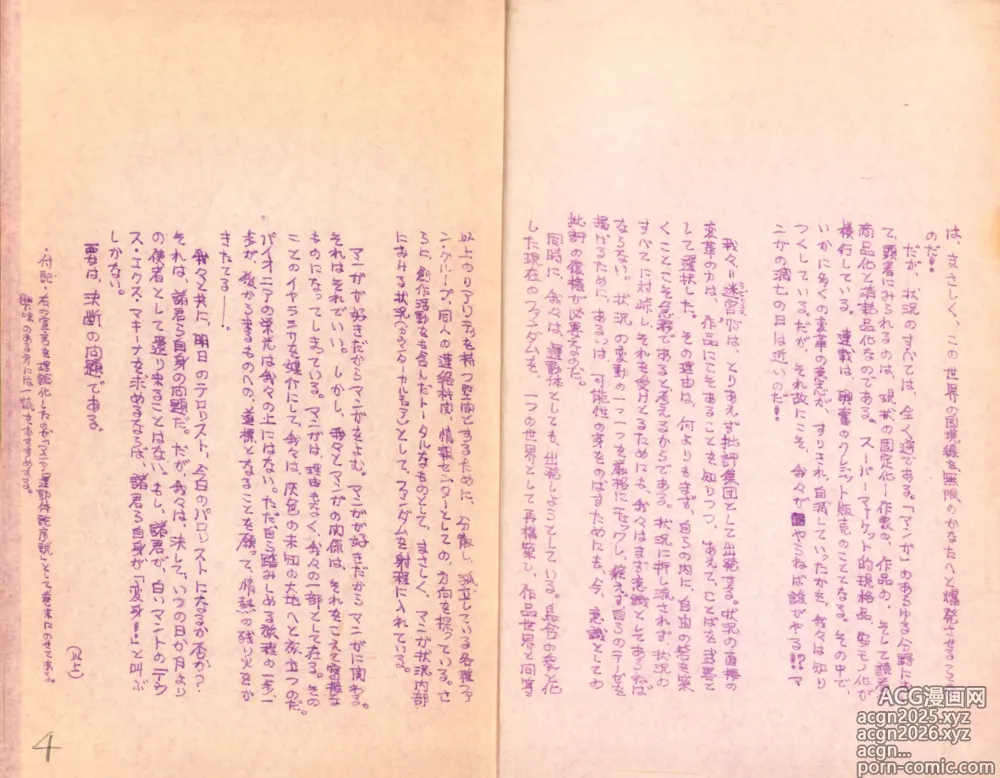 は、まさしく、この世界の国境線を無限のかなたへと爆発させることな
のだ!
だが、状況のすべては、全く逆である。「マンガ」のあらゆる分野におい
て、顕著にみられるのは、現状の固定化―作家の、作品の、そして読者の
商品化と消耗品化なのである。スーパーマーケット的規格品、安モノ化が
横行している。連載は、興奮のクレジット販売のこととなる。その中で、
いかに多くの変革の意志が、すりきれ、自滅していったかを、我々は知り
つくしている。だが、それ故にこそ、我々がやらねば誰がやる!?マ
ンガの滅亡の日は近いのだ!
我々="迷宮"は、とりあえず批評集団として出発する。状況の直接の
変革の力は、作品にこそあることを知りつつ、あえて、ことばを武器と
して選択した。その理由は、何よりもまず、自らの内に、自由の砦を築
くことこそ急務であると考えるからである。状況に押し流されず状況の
すべてに対峙し、それを受けとるためにも、我々はまず意識として
ならない。状況の変動の一つ一つを厳格にチェックし、絶えず自らのテーゼを
掲げるために、あるいは、可能性の芽をのばすためにも、今、意識としての
批評の復権が必要なのだ。
同時に、我々は、運動体としても、出発しようとしている。
した現在のファンダムを、一つの世界として再構築し、作品世界と同等
以上のリアリティを持つ空間とするために、分散し、孤立している各種ファ
ン・グループ、同人の連絡機関、情報センターとしての方向を探っている。さ
らに、創作活動をも含んだトータルなものとして、まさしく、マンガ状況内部
における状況として、ファンダムを射程に入れている。
マンガが好きだからマンガをよむ。マンガが好きだからマンガに関わる。
それはそれでいい。しかし、我々とマンガの関係は、それをこえて
ものになってしまっている。マンガは、理由もなく、我々の一部として在る。その
ことのイヤラシサを媒介にして、我々は、灰色の未知の大地へと旅立つのだ。
パイオニアの栄光は我々の上にはない。ただ自ら踏みしめる旅程の一歩一
歩が、後から来るものへの、道標となることを願って、情熱の残り火をか
きたてる――。
我々と共に、明日のテロリスト、今日のパロリストになるか否か?
それは、諸君ら自身の問題だ。だが、我々は、決して、いつの日か月より
の使者として還り来ることはない。もし、諸君が、白いマントのデウ
ス・エクス・マキーナを求めるならば、諸君ら自身が「変身!」と叫ぶ
しかない。
要は、決断の問題である。
(以上)
・付記・右の宣言を理論化したのが「マニア運動体論序説」として巻末にのせてある。
興味のある方には一読をおすすめする。
4
ACG漫画网
acgn2025.xyz
acgn2026.xyz
acgn...
porn-comic.com